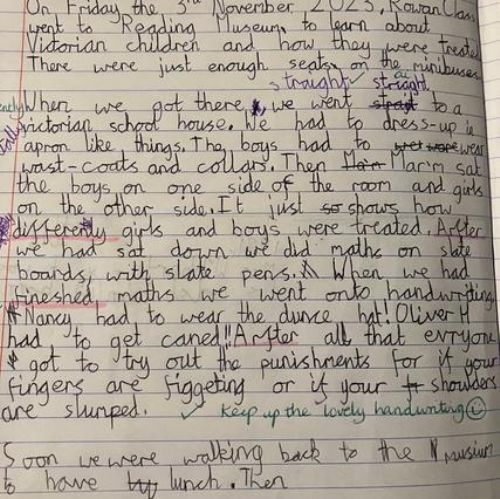 On Friday the 3rd November 2023, Rowan Class
went to Reading Museum to learn about
Victorian children and how they were treated
There were just enough seats on the minibuses
straight ✓ straight
When we got there, we went to a
victorian school house. We had to dress-up in
apron like things. The boys had to wear
wast-coats and collars. Then Mar'm sat
the boys on one side of the room and girls
on the other side. It just shows how
differently girls and boys were treated. Arfter
we had sat down we did maths on slate
boards, with slate pens. When we had
fineshed maths we went onto handwriting
Nancy had to wear the dunce hat! Oliver H
had to get caned!! Arfter all that evryone
got to try out the punishments for if your
fingers are figgeting or if your shoulders
are slumped. ✓ Keep up the lovely handwriting ☺
Soon we were walking back to the musium
to have lunch. Then